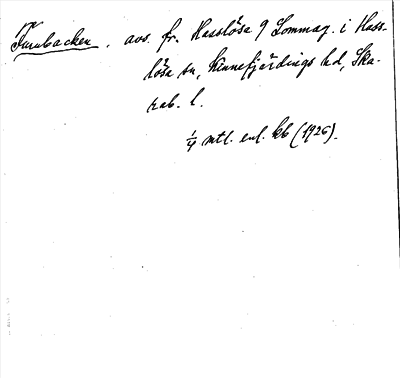 Furubacken, avs. fr. Hasslösa 9 Sommag. i Hass-
lösa sn, Kinnefjärdings hd, Ska-
rab. l.
1/4 mtl. enl. kb (1926).